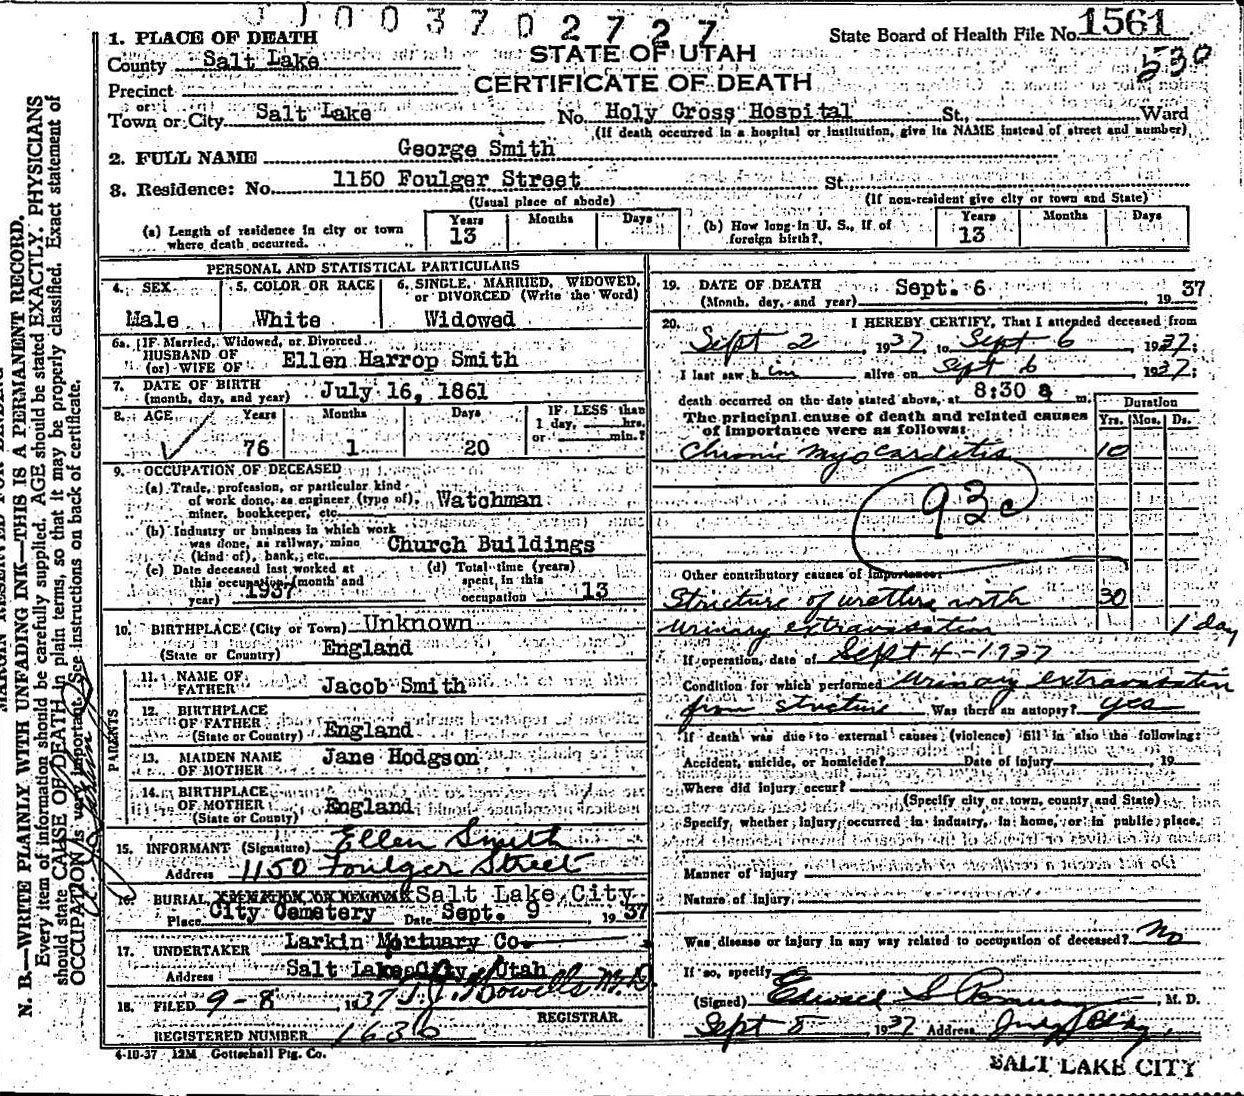 0 0 3 7 0 2 7 2 7
State Board of Health File No. 1561
530
STATE OF UTAH
CERTIFICATE OF DEATH
1. PLACE OF DEATH
County Salt Lake
Precinct
or
Town or City Salt Lake No. Holy Cross Hospital St., Ward
(If death occurred in a hospital or institution, give its NAME instead of street and number)
2. FULL NAME George Smith
8. Residence: No. 1150 Foulger Street St.,
(Usual place of abode) (If non-resident give city or town and State)
(a) Length of residence in city or town where death occurred. Years 13 Months Days
(b) How long in U. S., if of foreign birth? Years 13 Months Days
PERSONAL AND STATISTICAL PARTICULARS
4. SEX Male
5. COLOR OR RACE White
6. SINGLE, MARRIED, WIDOWED, or DIVORCED (Write the Word) Widowed
6a. IF Married, Widowed, or Divorced
HUSBAND OF
(or) WIFE OF Ellen Harrop Smith
7. DATE OF BIRTH
(month, day, and year) July 16, 1861
8. AGE Years 76 Months 1 Days 20 IF LESS than 1 day, hrs. or min.?
9. OCCUPATION OF DECEASED
(a) Trade, profession, or particular kind of work done, as engineer (type of), miner, bookkeeper, etc. Watchman
(b) Industry or business in which work was done, as railway, mine (kind of), bank, etc. Church Buildings
(c) Date deceased last worked at this occupation (month and year) 1937
(d) Total time (years) spent in this occupation 13
10. BIRTHPLACE (City or Town) Unknown
(State or Country) England
PARENTS
11. NAME OF FATHER Jacob Smith
12. BIRTHPLACE OF FATHER
(State or Country) England
13. MAIDEN NAME OF MOTHER Jane Hodgson
14. BIRTHPLACE OF MOTHER
(State or Country) England
15. INFORMANT (Signature) Ellen Smith
Address 1150 Foulger Street
16. BURIAL, CREMATION OR REMOVAL Salt Lake City
Place City Cemetery Date Sept. 9, 1937
17. UNDERTAKER Larkin Mortuary Co.
Address Salt Lake City, Utah
18. FILED 9-8 1937 M.D.
REGISTRAR.
REGISTERED NUMBER 1636
4-10-37 12M Gottschall Ptg. Co.
19. DATE OF DEATH
(Month, day, and year) Sept. 6 1937
20. I HEREBY CERTIFY, That I attended deceased from
Sept 2, 1937, to Sept 6, 1937;
I last saw him alive on Sept 6, 1937;
death occurred on the date stated above, at 8:30 a m.
The principal cause of death and related causes of importance were as follows:
Duration
Yrs. Mos. Ds.
Chronic Myocarditis 10
93c
Other contributory causes of importance:
Stricture of urethra with 30
urinary extravasation 1 day
If operation, date of Sept 4-1937
Condition for which performed Urinary extravasation
from stricture Was there an autopsy? yes
If death was due to external causes (violence) fill in also the following:
Accident, suicide, or homicide? Date of injury, 19
Where did injury occur?
(Specify city or town, county and State)
Specify whether injury occurred in industry, in home, or in public place.
Manner of injury
Nature of injury
Was disease or injury in any way related to occupation of deceased? No
If so, specify
(Signed) Edward S. M. D.
Sept 8 1937 Address Judge Bldg.
SALT LAKE CITY
N. B.—WRITE PLAINLY WITH UNFADING INK—THIS IS A PERMANENT RECORD.
Every item of information should be carefully supplied. AGE should be stated EXACTLY. PHYSICIANS
should state CAUSE OF DEATH in plain terms, so that it may be properly classified. Exact statement of
OCCUPATION is very important. See instructions on back of certificate.